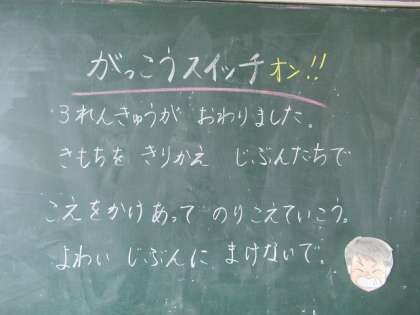 がっこうスイッチオン!!
3れんきゅうが おわりました。
きもちを きりかえ じぶんたちで
こえをかけあって のりこえていこう。
よわい じぶんに まけないで。